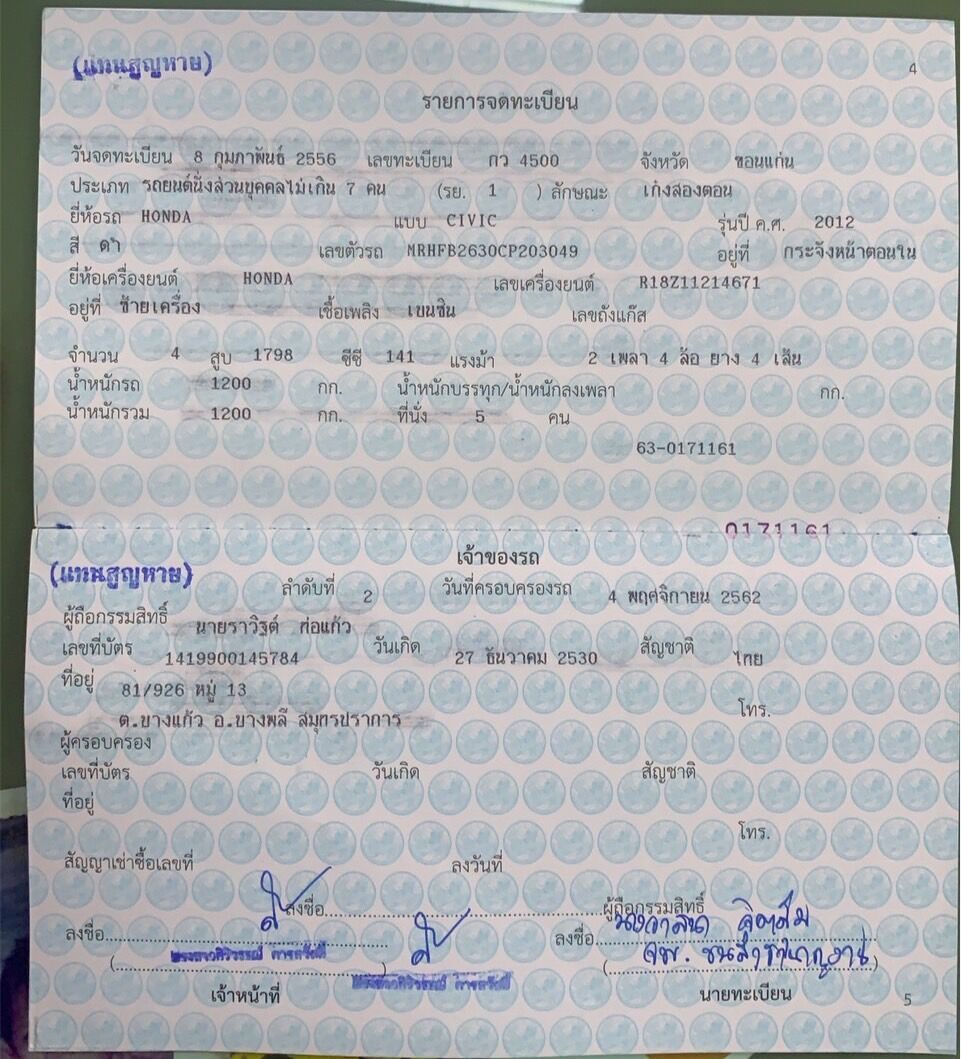 (แทนสูญหาย)
4
รายการจดทะเบียน
วันจดทะเบียน 8 กุมภาพันธ์ 2556 เลขทะเบียน กว 4500 จังหวัด ขอนแก่น
ประเภท รถยนต์นั่งส่วนบุคคลไม่เกิน 7 คน (รย. 1 ) ลักษณะ เก๋งสองตอน
ยี่ห้อรถ HONDA แบบ CIVIC รุ่นปี ค.ศ. 2012
สี ดำ เลขตัวรถ MRHFB2630CP203049 อยู่ที่ กระจังหน้าตอนใน
ยี่ห้อเครื่องยนต์ HONDA เลขเครื่องยนต์ R18Z11214671
อยู่ที่ ซ้ายเครื่อง เชื้อเพลิง เบนซิน เลขถังแก๊ส
จำนวน 4 สูบ 1798 ซีซี 141 แรงม้า 2 เพลา 4 ล้อ ยาง 4 เส้น
น้ำหนักรถ 1200 กก. น้ำหนักบรรทุก/น้ำหนักลงเพลา กก.
น้ำหนักรวม 1200 กก. ที่นั่ง 5 คน
63-0171161
0171161
เจ้าของรถ
(แทนสูญหาย)
ลำดับที่ 2 วันที่ครอบครองรถ 4 พฤศจิกายน 2562
ผู้ถือกรรมสิทธิ์ นายราวิฐต์ ก่อแก้ว
เลขที่บัตร 1419900145784 วันเกิด 27 ธันวาคม 2530 สัญชาติ ไทย
ที่อยู่ 81/926 หมู่ 13
ต.บางแก้ว อ.บางพลี สมุทรปราการ โทร.
ผู้ครอบครอง
เลขที่บัตร วันเกิด สัญชาติ
ที่อยู่
โทร.
สัญญาเช่าซื้อเลขที่ ลงวันที่
ลงชื่อ ผู้ถือกรรมสิทธิ์
ลงชื่อ ลงชื่อ
เจ้าหน้าที่ นายทะเบียน
5